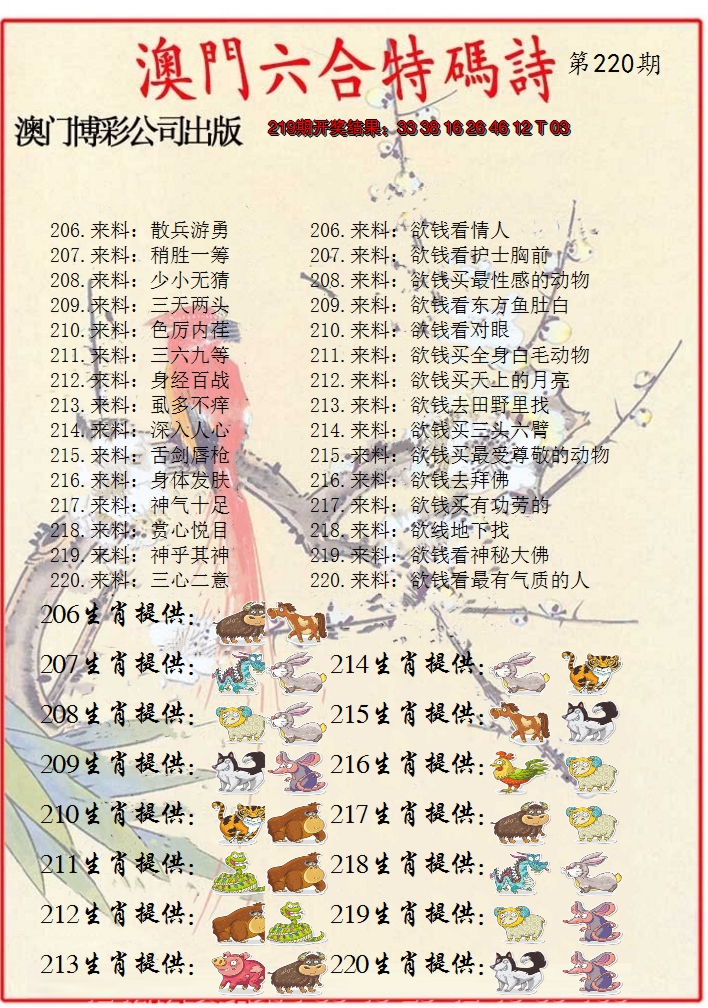 澳門六合特碼詩 第220期
澳门博彩公司出版 219期开奖结果：33 36 16 26 46 12 T 03
206.来料：散兵游勇 206.来料：欲钱看情人
207.来料：稍胜一筹 207.来料：欲钱看护士胸前
208.来料：少小无猜 208.来料：欲钱买最性感的动物
209.来料：三天两头 209.来料：欲钱看东方鱼肚白
210.来料：色厉内荏 210.来料：欲钱看对眼
211.来料：三六九等 211.来料：欲钱买全身白毛动物
212.来料：身经百战 212.来料：欲钱买天上的月亮
213.来料：虱多不痒 213.来料：欲钱去田野里找
214.来料：深入人心 214.来料：欲钱买三头六臂
215.来料：舌剑唇枪 215.来料：欲钱买最爱尊敬的动物
216.来料：身体发肤 216.来料：欲钱去拜佛
217.来料：神气十足 217.来料：欲钱买有功劳的
218.来料：赏心悦目 218.来料：欲线地下找
219.来料：神乎其神 219.来料：欲钱看神秘大佛
220.来料：三心二意 220.来料：欲钱看最有气质的人
206生肖提供：
207生肖提供： 214生肖提供：
208生肖提供： 215生肖提供：
209生肖提供： 216生肖提供：
210生肖提供： 217生肖提供：
211生肖提供： 218生肖提供：
212生肖提供： 219生肖提供：
213生肖提供： 220生肖提供：